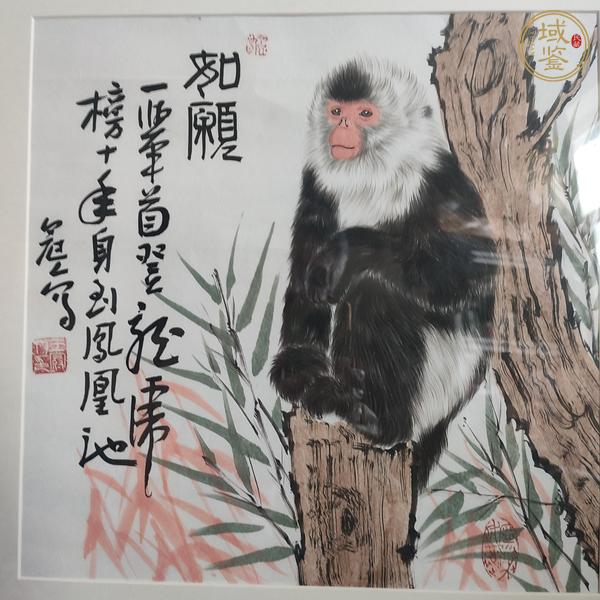 如願
一舉首登龍虎
榜十年身到鳳凰池
寫
域鉴